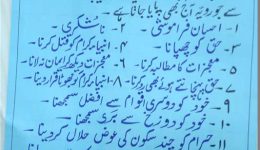 سے جو رویہ آج بھی پایا جاتا ہے
1 - احسان فراموشی 2 - ناشکری
3 - حق کو چھپانا 4 - انبیاء کرام کو قتل کرنا
5 - معجزات کا مطالبہ کرنا 6 - معجزات دیکھ کر ایمان نہ لانا
7 - حق پہچانتے ہوئے بھی رد کرنا 8 - انبیاء کرام کو جھوٹا قرار دینا
9 - خود کو دوسری اقوام سے افضل سمجھنا
10 - خود کو دوزخ سے بری سمجھنا
11 - حرام کو چند سکوں کی عوض حلال کر دینا